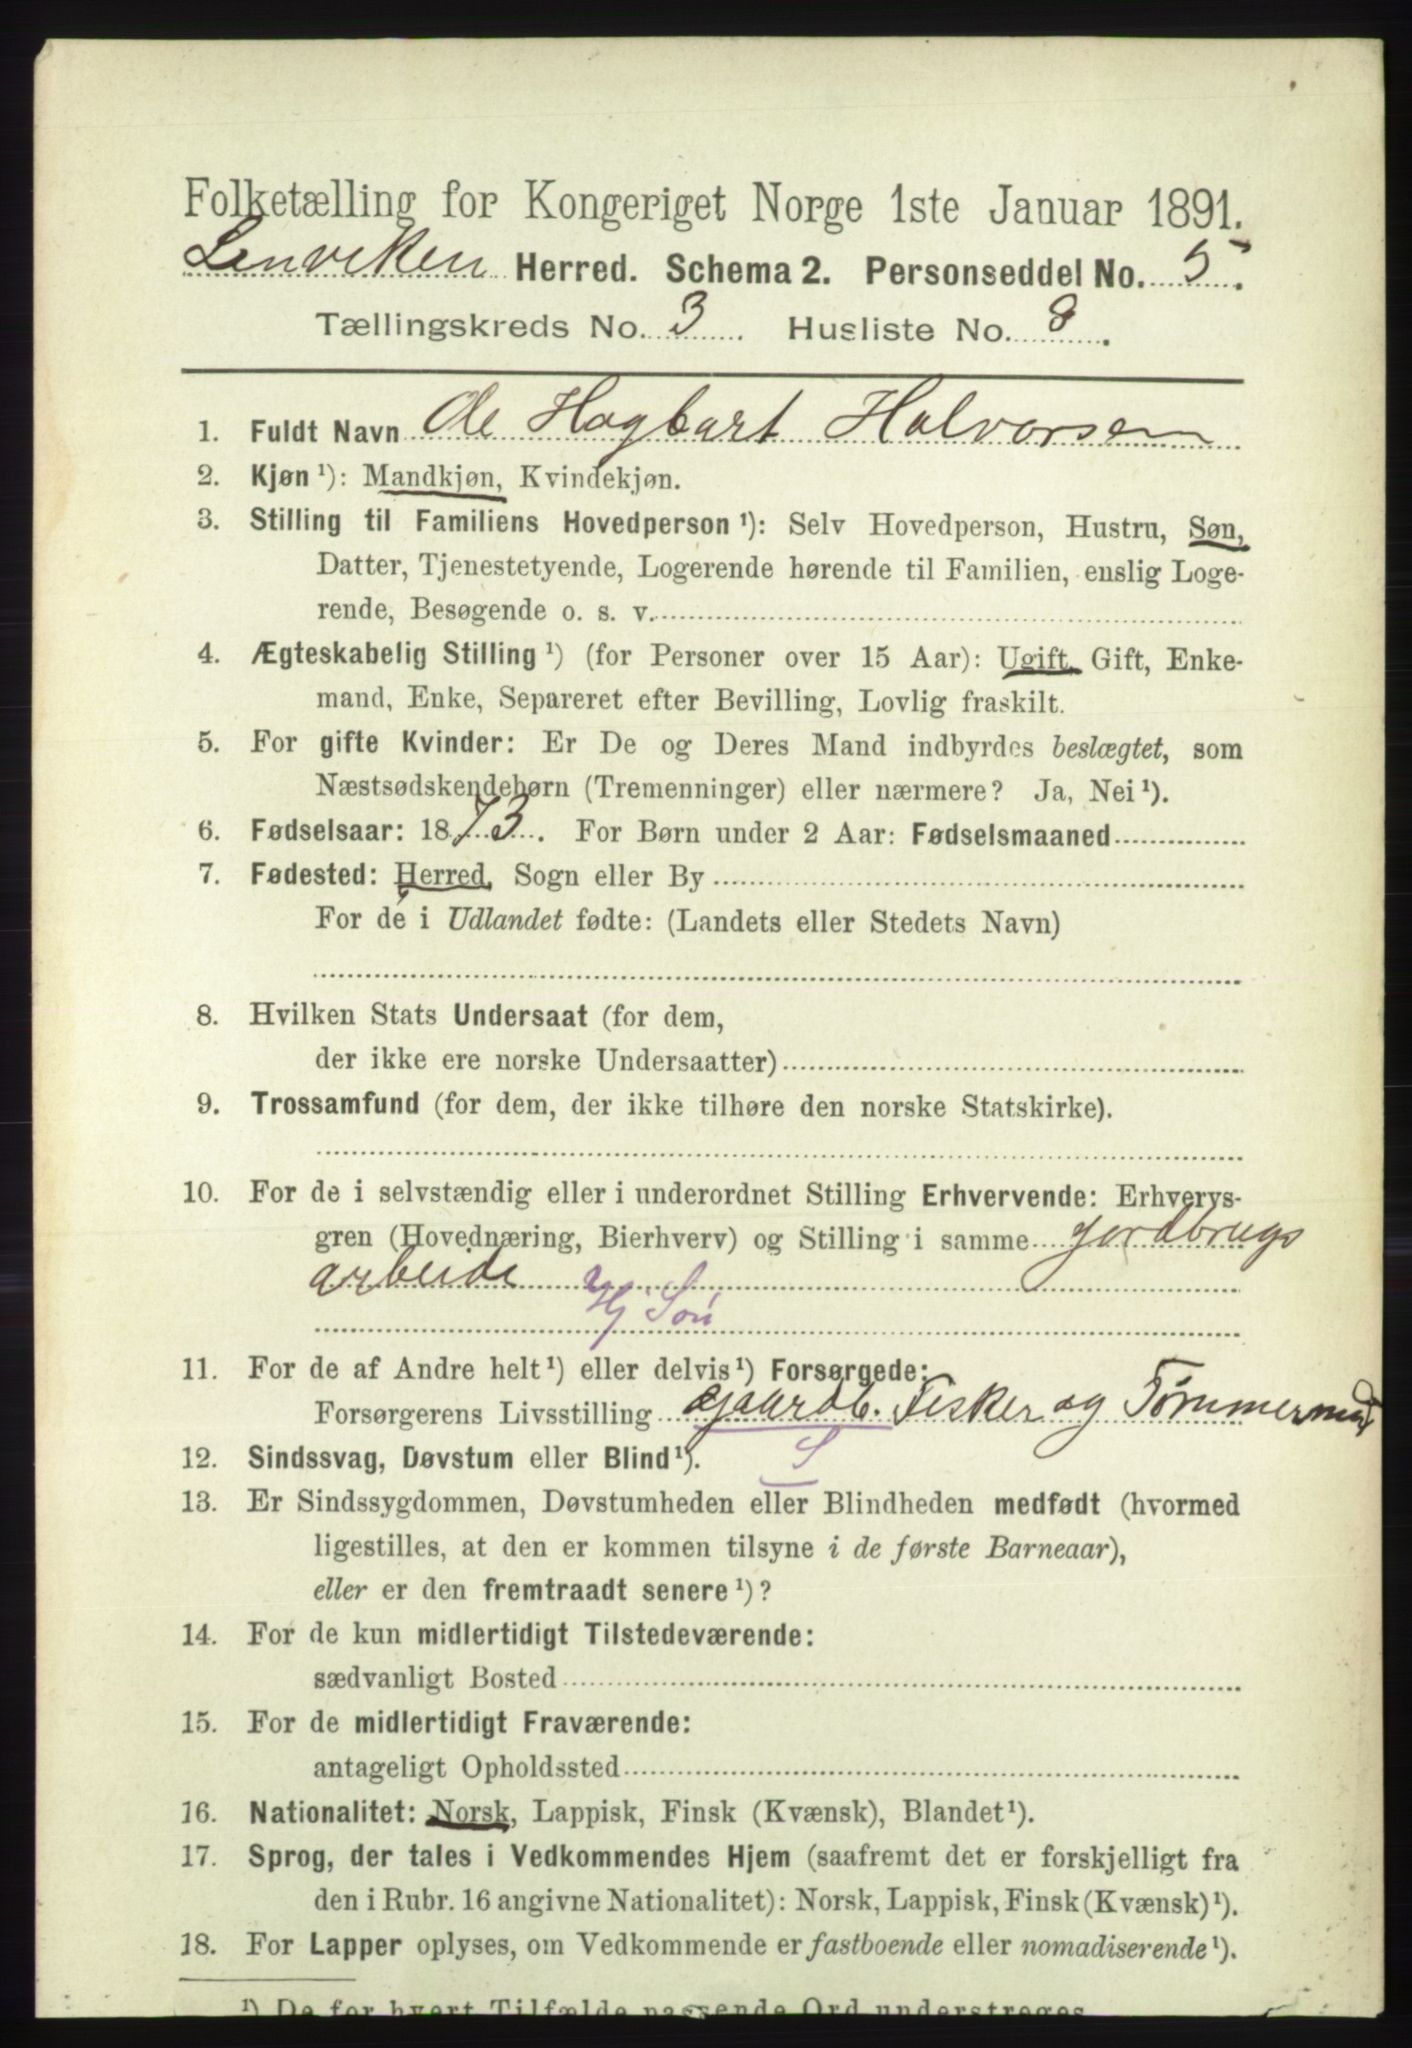 Folketælling for Kongeriget Norge 1ste Januar 1891.
Lenviken Herred. Schema 2. Personseddel No. 5.
Tællingskreds No. 3. Husliste No. 8.
1. Fuldt Navn Ole Hagbart Halvorsen
2. Kjøn ¹): Mandkjøn, Kvindekjøn.
3. Stilling til Familiens Hovedperson ¹): Selv Hovedperson, Hustru, Søn,
Datter, Tjenestetyende, Logerende hørende til Familien, enslig Loge-
rende, Besøgende o. s. v.
4. Ægteskabelig Stilling ¹) (for Personer over 15 Aar): Ugift, Gift, Enke-
mand, Enke, Separeret efter Bevilling, Lovlig fraskilt.
5. For gifte Kvinder: Er De og Deres Mand indbyrdes beslægtet, som
Næstsødskendebørn (Tremenninger) eller nærmere? Ja, Nei ¹).
6. Fødselsaar: 1873. For Børn under 2 Aar: Fødselsmaaned
7. Fødested: Herred, Sogn eller By
For de i Udlandet fødte: (Landets eller Stedets Navn)
8. Hvilken Stats Undersaat (for dem,
der ikke ere norske Undersaatter)
9. Trossamfund (for dem, der ikke tilhøre den norske Statskirke).
10. For de i selvstændig eller i underordnet Stilling Erhvervende: Erhvervs-
gren (Hovednæring, Bierhverv) og Stilling i samme jordbrugs
arbeide
Hj Søn
11. For de af Andre helt ¹) eller delvis ¹) Forsørgede:
Forsørgerens Livsstilling gaardb. Fisker og Tømmermand
12. Sindssvag, Døvstum eller Blind ¹). S
13. Er Sindssygdommen, Døvstumheden eller Blindheden medfødt (hvormed
ligestilles, at den er kommen tilsyne i de første Barneaar),
eller er den fremtraadt senere ¹)?
14. For de kun midlertidigt Tilstedeværende:
sædvanligt Bosted
15. For de midlertidigt Fraværende:
antageligt Opholdssted
16. Nationalitet: Norsk, Lappisk, Finsk (Kvænsk), Blandet ¹).
17. Sprog, der tales i Vedkommendes Hjem (saafremt det er forskjelligt fra
den i Rubr. 16 angivne Nationalitet): Norsk, Lappisk, Finsk (Kvænsk) ¹).
18. For Lapper oplyses, om Vedkommende er fastboende eller nomadiserende ¹).
¹) De for hvert Tilfælde passende Ord understreges.